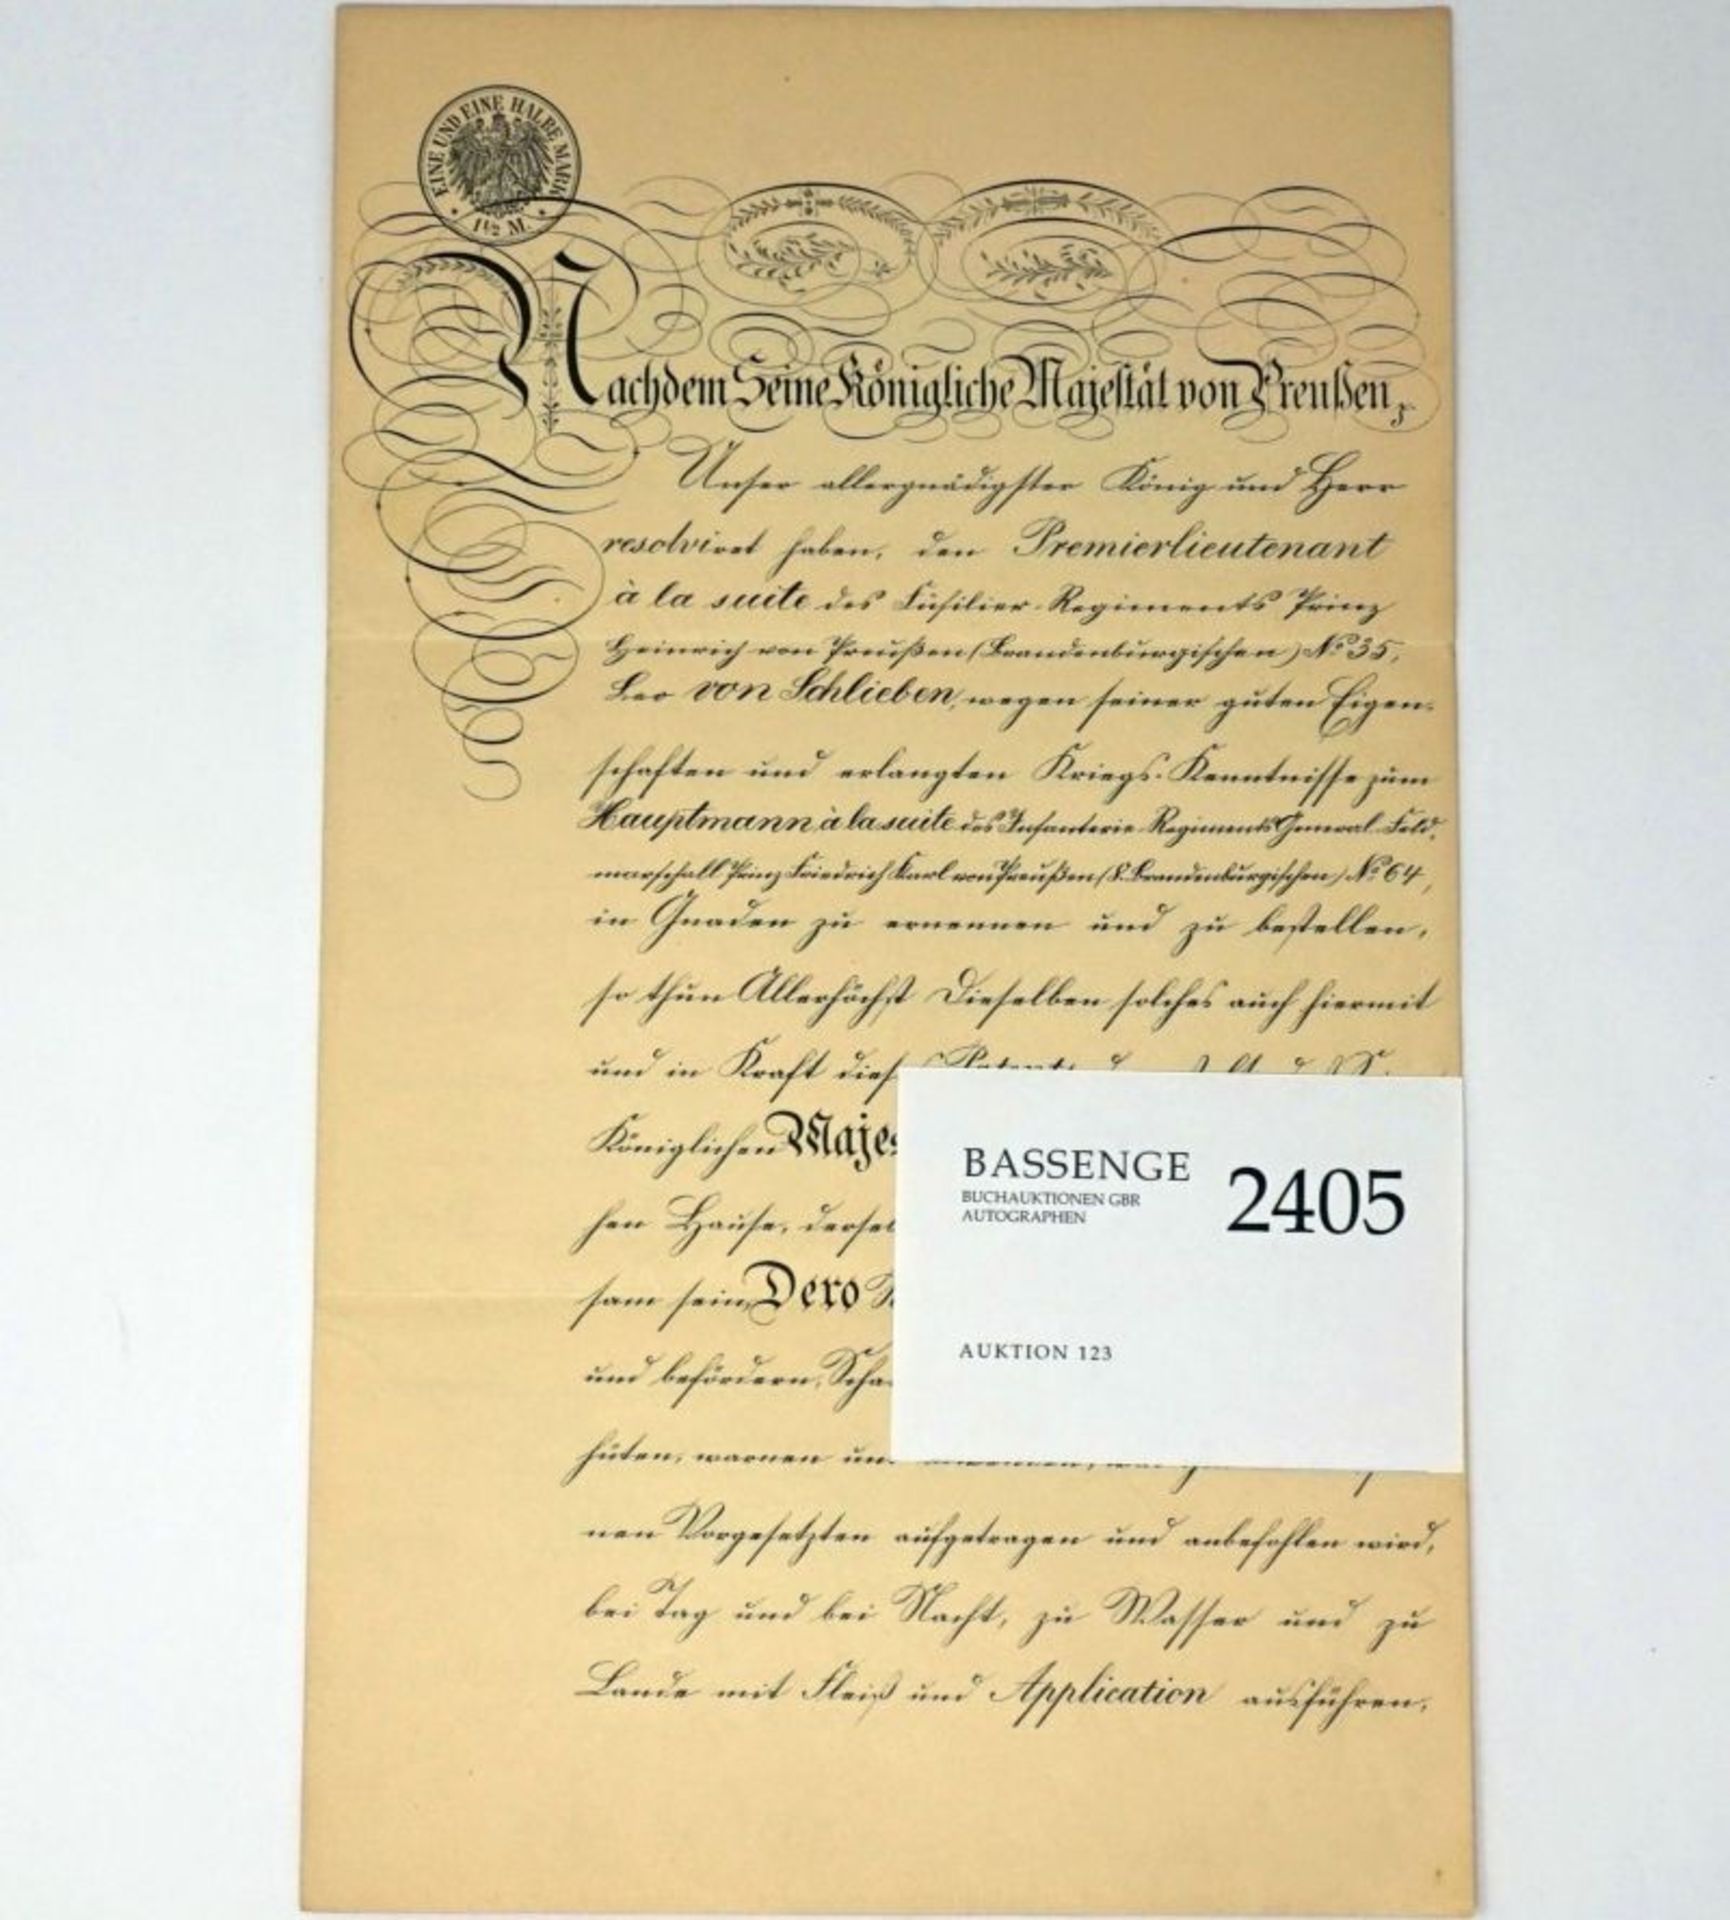 EINE UND EINE HALBE MARK
1½ M.
Nachdem Seine Königliche Majestät von Preußen,
Unser allergnädigster König und Herr
resolviret haben, den Premierlieutenant
à la suite des Füsilier-Regiments Prinz
Heinrich von Preußen (Brandenburgischen) No 35,
Leo von Schlieben, wegen seiner guten Eigen-
schaften und erlangten Kriegs-Kenntnisse zum
Hauptmann à la suite des Infanterie-Regiments General-Feld-
marschall Prinz Friedrich Karl von Preußen (8. Brandenburgischen) No 64,
in Gnaden zu ernennen und zu bestellen,
so thun Allerhöchst Dieselben solches auch hiermit
und in Kraft dies
Königlichen Majes
hen Hause, dersel
sam sein, Dero
und befördern, Scha
hüten, warnen un
nen Vorgesetzten aufgetragen und anbefohlen wird,
bei Tag und bei Nacht, zu Wasser und zu
Lande mit Fleiß und Application ausführen,
BASSENGE
BUCHAUKTIONEN GBR
AUTOGRAPHEN
2405
AUKTION 123